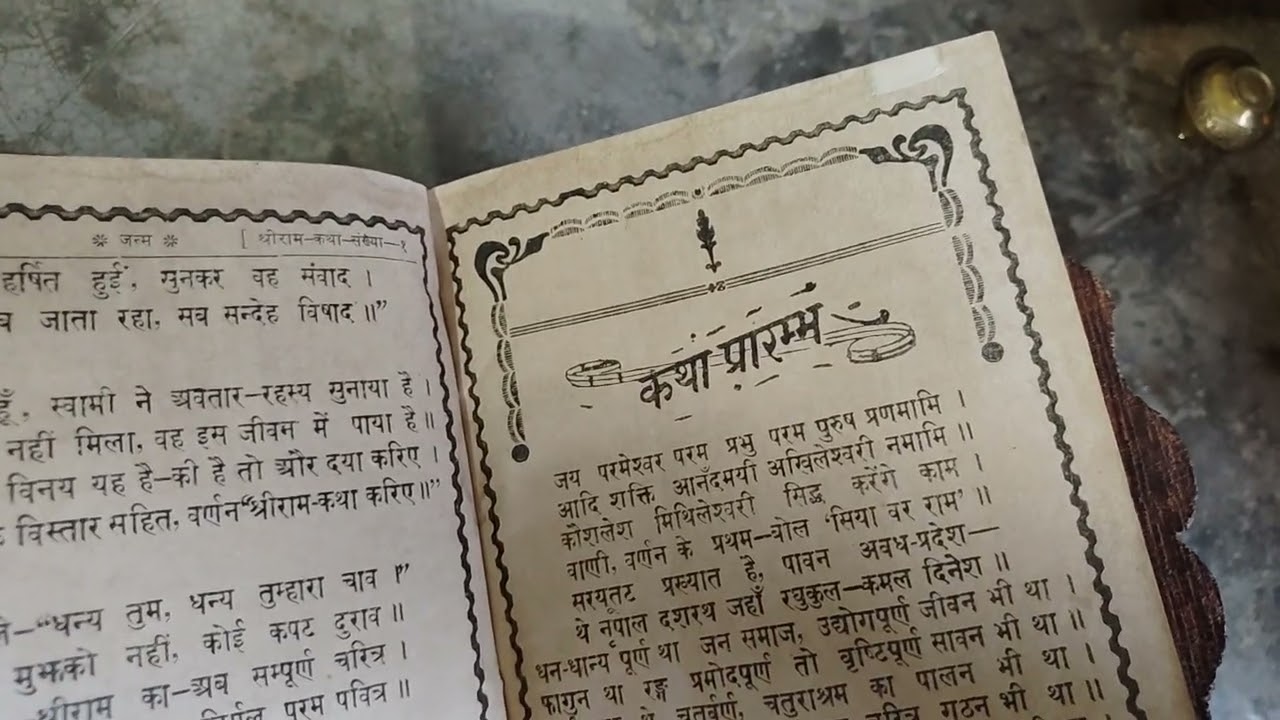 ❋ जन्म ❋ [ श्रीराम-कथा-संख्या-१
हर्षित हुईं, सुनकर वह संवाद ।
जाता रहा, सब सन्देह विषाद ॥”
स्वामी ने अवतार-रहस्य सुनाया है ।
नहीं मिला, वह इस जीवन में पाया है ॥
विनय यह है-की है तो और दया करिए ।
विस्तार सहित, वर्णन “श्रीराम-कथा करिए ॥”
“धन्य तुम, धन्य तुम्हारा चाव ।”
मुझको नहीं, कोई कपट दुराव ॥
श्रीराम का-अब सम्पूर्ण चरित्र ।
परम पवित्र ॥
कथा प्रारम्भ
जय परमेश्वर परम प्रभु परम पुरुष प्रणमामि ।
आदि शक्ति आनँदमयी अखिलेश्वरी नमामि ॥
कौशलेश मिथिलेश्वरी सिद्ध करेंगे काम ।
वाणी, वर्णन के प्रथम-बोल ‘सिया वर राम’ ॥
सरयूतट प्रख्यात है, पावन अवध-प्रदेश—
थे नृपाल दशरथ जहाँ रघुकुल-कमल दिनेश ॥
धन-धान्य पूर्ण था जन समाज, उद्योगपूर्ण जीवन भी था ।
फागुन था रङ्ग प्रमोदपूर्ण तो वृष्टिपूर्ण सावन भी था ॥
चतुर्वर्ण, चतुराश्रम का पालन भी था ।
चरित्र गठन भी था ॥